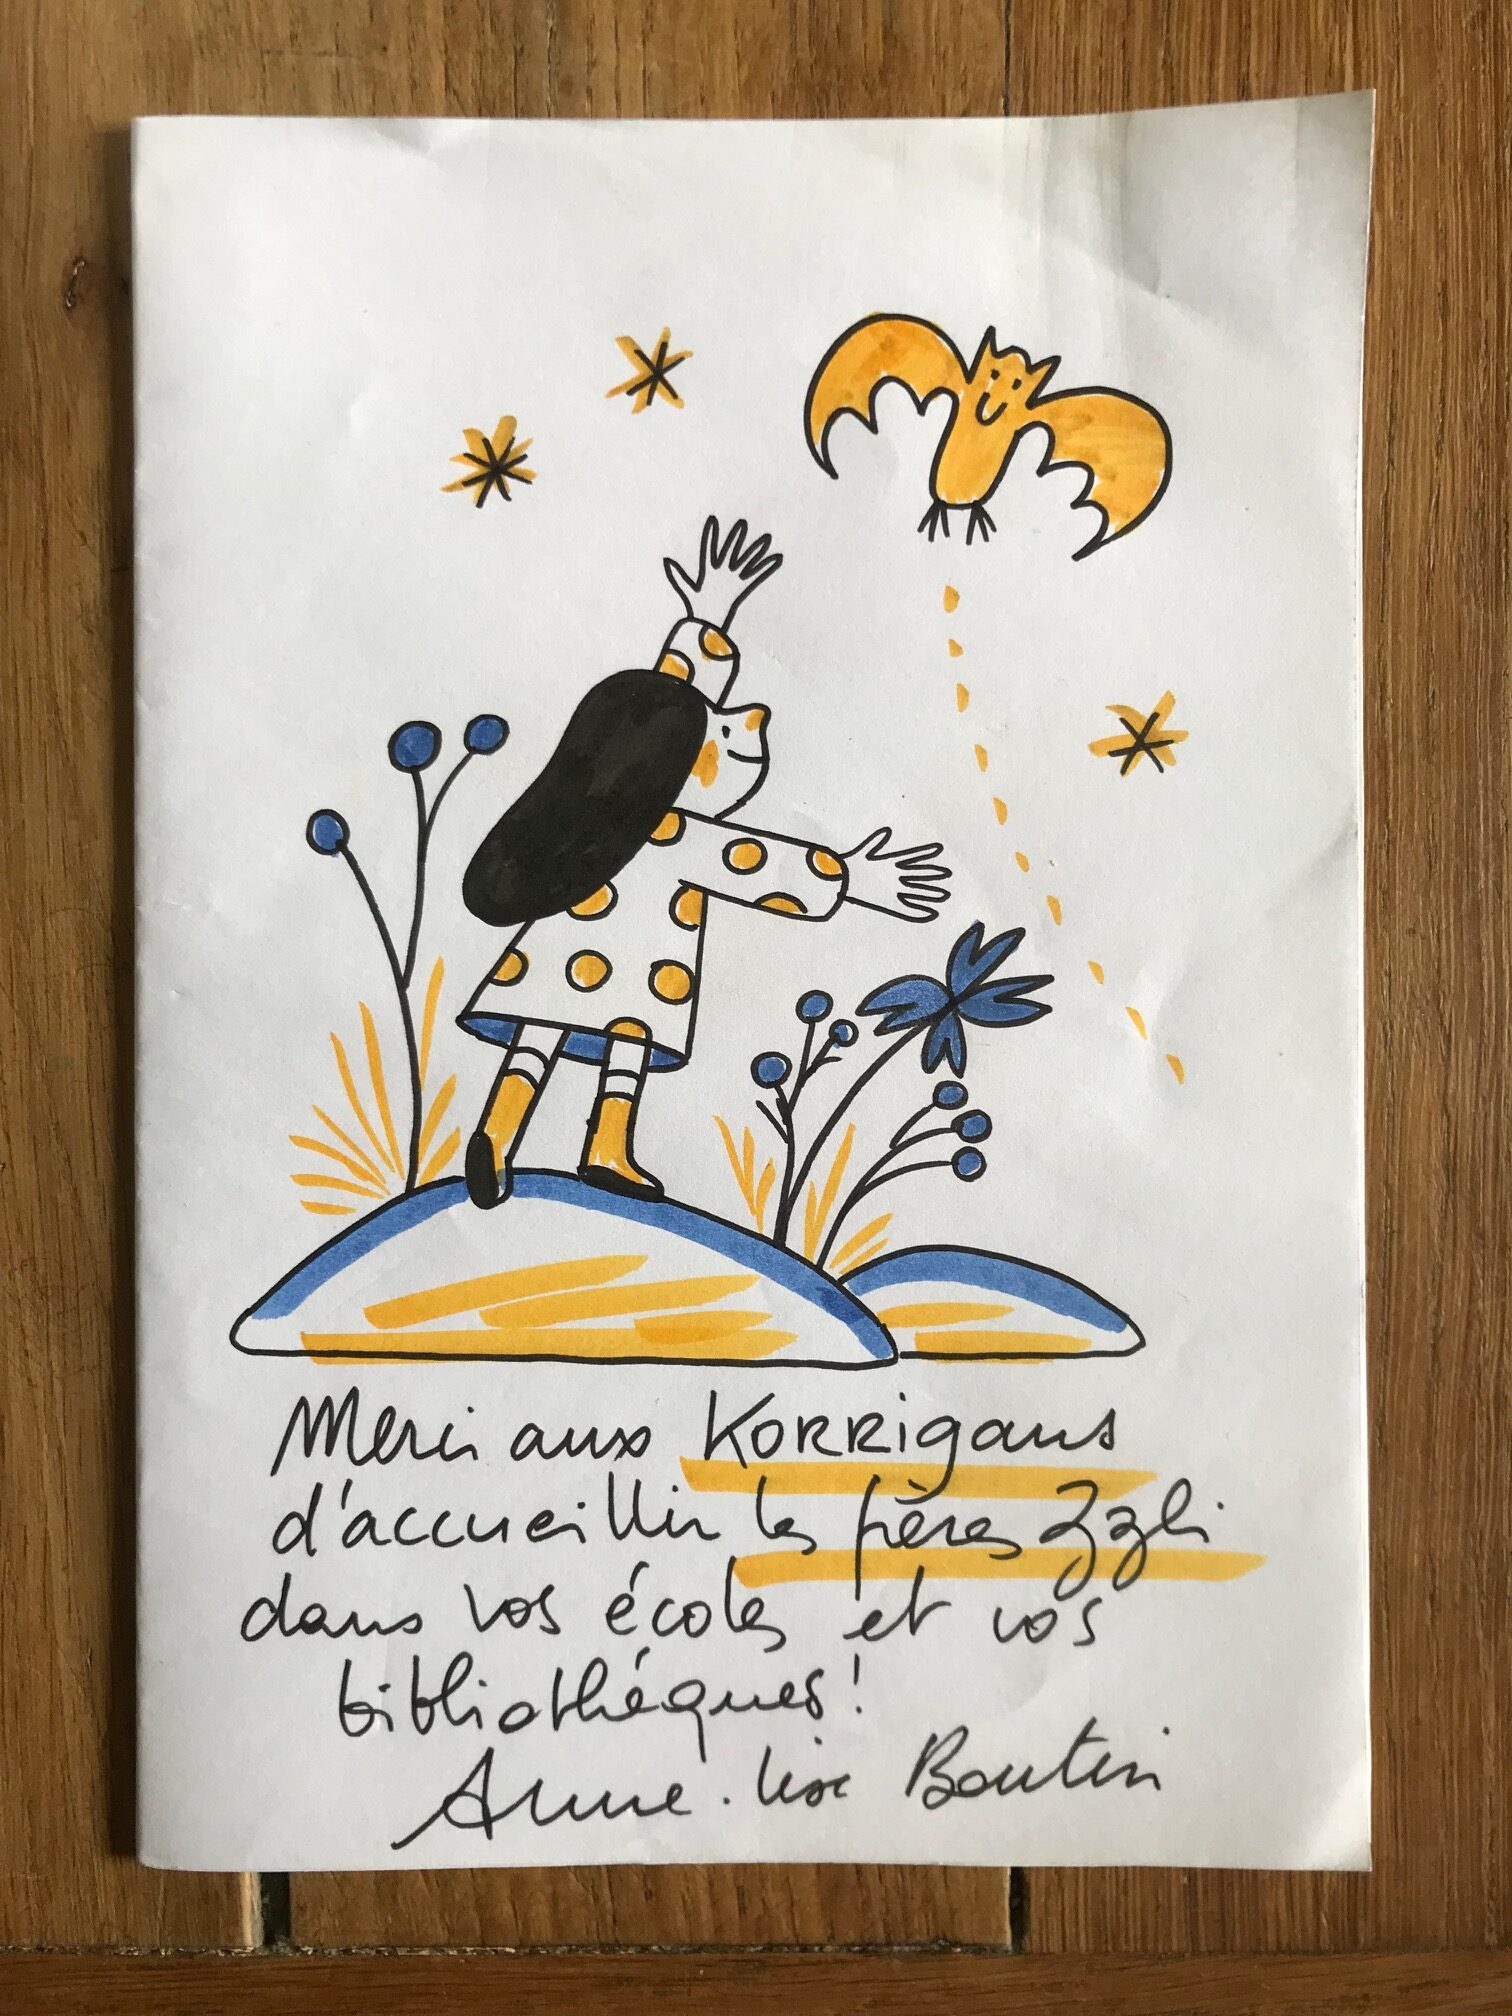 Merci aux Korrigans
d'accueillir les frères Zzli
dans vos écoles et vos
bibliothèques!
Anne-Lise Boutin